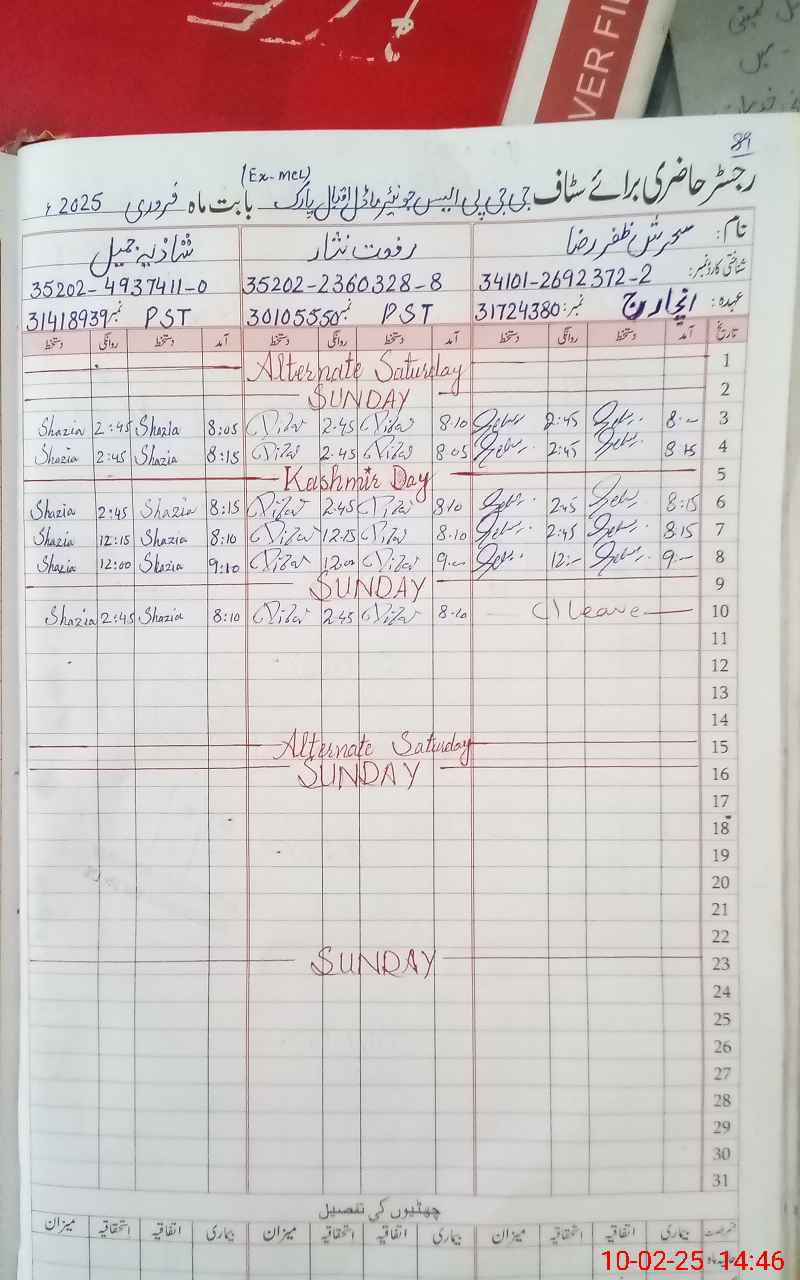 VER FIL
89
(Ex-MCL)
رجسٹر حاضری برائے سٹاف جی جی پی ایس جونیئر ماڈل اقبال پارک بابت ماہ فروری 2025ء
نام: سحرش ظفر رضا رفوت نثار شازیہ جمیل
شناختی کارڈ نمبر: 34101-2692372-2 35202-2360328-8 35202-4937411-0
عہدہ: انچارج نمبر: 31724380 PST نمبر 30105550 PST نمبر 31418939
تاریخ آمد دستخط روانگی دستخط آمد دستخط روانگی دستخط آمد دستخط روانگی دستخط
Alternate Saturday 1
SUNDAY 2
Shazia 2:45 Shazia 8:05 2:45 8:10 2:45 8:- 3
Shazia 2:45 Shazia 8:15 2:45 8:05 2:45 8:15 4
Kashmir Day 5
Shazia 2:45 Shazia 8:15 2:45 8:10 2:45 8:15 6
Shazia 12:15 Shazia 8:10 12:15 8:10 2:45 8:15 7
Shazia 12:00 Shazia 9:10 12:00 9:- 12:- 9:- 8
SUNDAY 9
Shazia 2:45 Shazia 8:10 2:45 8:10 Cl leave 10
11
12
13
14
Alternate Saturday 15
SUNDAY 16
17
18
19
20
21
22
SUNDAY 23
24
25
26
27
28
29
30
31
چھٹیوں کی تفصیل
رخصت بیماری اتفاقیہ استحقاقیہ میزان بیماری اتفاقیہ استحقاقیہ میزان بیماری اتفاقیہ استحقاقیہ میزان
10-02-25 14:46